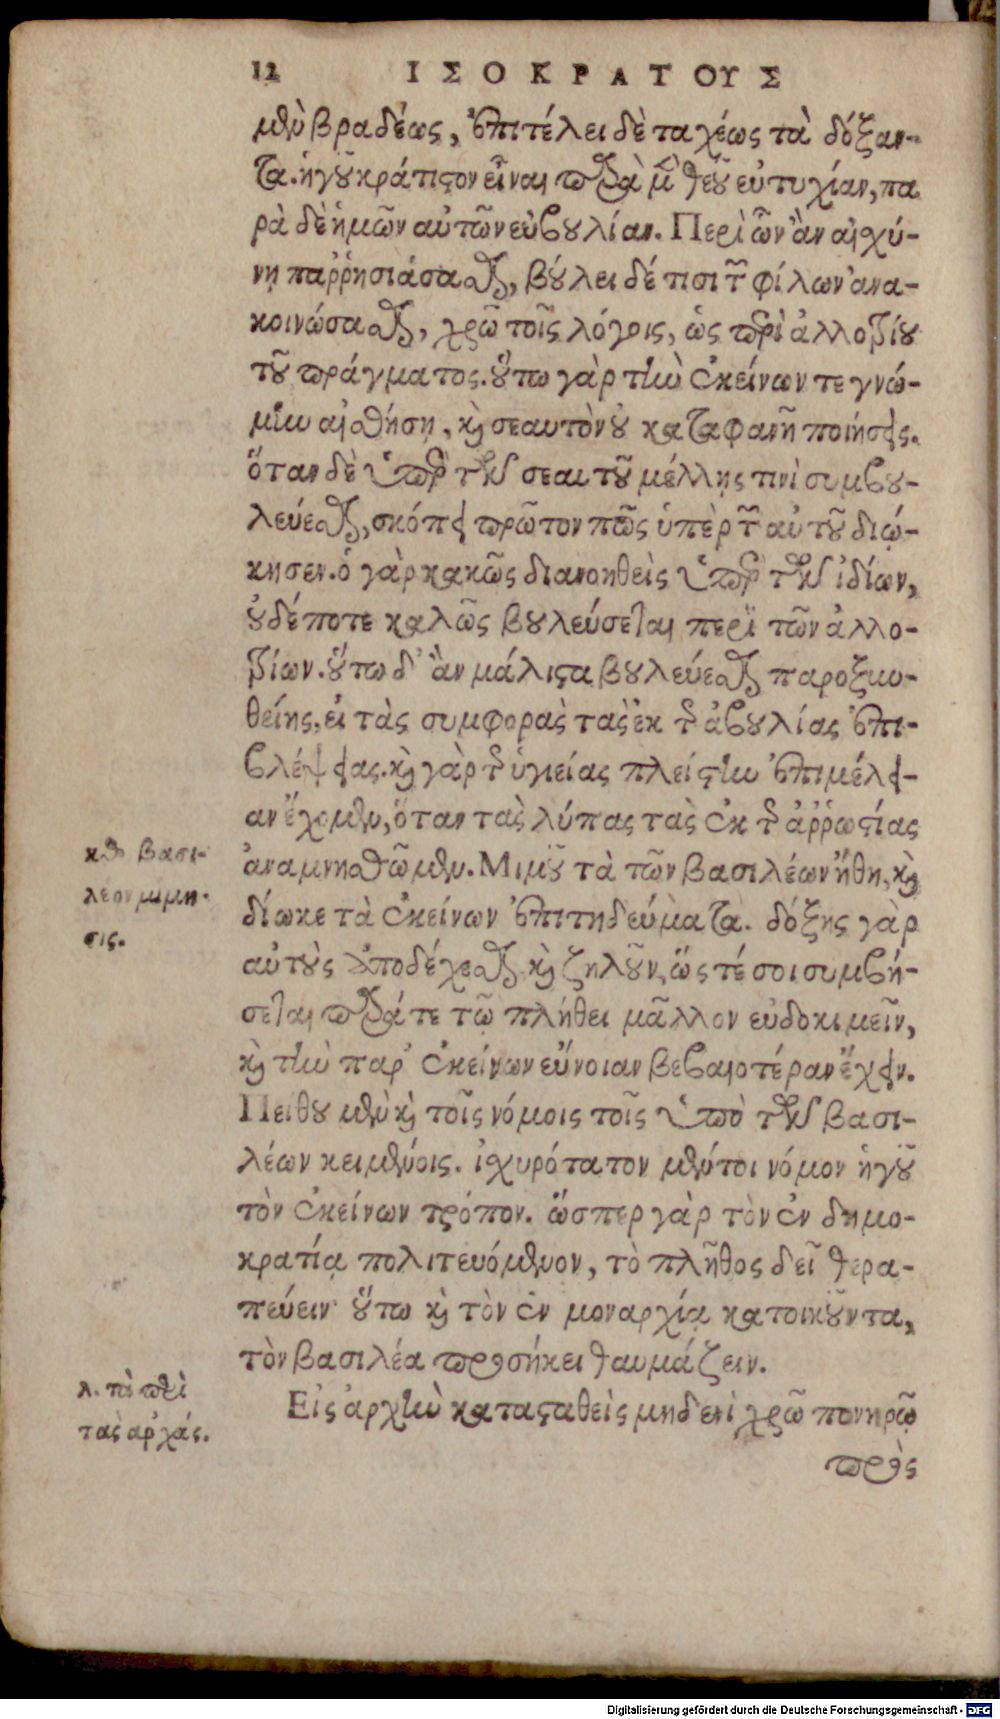 12 ΙΣΟΚΡΑΤΟΥΣ
μὲν βραδέως, ἐπιτέλει δὲ ταχέως τὰ δόξαν-
τα. ἡγοῦ κράτιστον εἶναι παρὰ μὲν θεοῦ εὐτυχίαν, πα
ρὰ δὲ ἡμῶν αὐτῶν εὐβουλίαν. Περὶ ὧν ἂν αἰσχύ-
νῃ παῤῥησιάσασθαι, βούλει δέ τισι τῶν φίλων ἀνα-
κοινώσασθαι, χρῶ τοῖς λόγοις, ὡς περὶ ἀλλοτρίου
τοῦ πράγματος. οὕτω γὰρ τὴν ἐκείνων τε γνώ-
μην αἰσθήσῃ, καὶ σεαυτὸν οὐ καταφανῆ ποιήσεις.
ὅταν δὲ ὑπὲρ τῶν σεαυτοῦ μέλλῃς τινὶ συμβου-
λεύεσθαι, σκόπει πρῶτον πῶς ὑπὲρ τῶν αὑτοῦ διῴ-
κησεν. ὁ γὰρ κακῶς διανοηθεὶς ὑπὲρ τῶν ἰδίων,
οὐδέποτε καλῶς βουλεύσεται περὶ τῶν ἀλλο-
τρίων. οὕτω δ' ἂν μάλιστα βουλεύεσθαι παροξυν-
θείης, εἰ τὰς συμφορὰς τὰς ἐκ τῆς ἀβουλίας ἐπι-
βλέψειας. καὶ γὰρ τῆς ὑγιείας πλείστην ἐπιμέλει-
αν ἔχομεν, ὅταν τὰς λύπας τὰς ἐκ τῆς ἀῤῥωστίας
ἀναμνησθῶμεν. Μιμοῦ τὰ τῶν βασιλέων ἤθη, καὶ
δίωκε τὰ ἐκείνων ἐπιτηδεύματα. δόξεις γὰρ
αὐτοὺς ἀποδέχεσθαι καὶ ζηλοῦν, ὥστέ σοι συμβή-
σεται παρά τε τῷ πλήθει μᾶλλον εὐδοκιμεῖν,
καὶ τὴν παρ' ἐκείνων εὔνοιαν βεβαιοτέραν ἔχειν.
Πείθου μὲν καὶ τοῖς νόμοις τοῖς ὑπὸ τῶν βασι-
λέων κειμένοις. ἰσχυρότατον μέντοι νόμον ἡγοῦ
τὸν ἐκείνων τρόπον. ὥσπερ γὰρ τὸν ἐν δημο-
κρατίᾳ πολιτευόμενον, τὸ πλῆθος δεῖ θερα-
πεύειν οὕτω καὶ τὸν ἐν μοναρχίᾳ κατοικοῦντα,
τὸν βασιλέα προσήκει θαυμάζειν.
Εἰς ἀρχὴν κατασταθεὶς μηδενὶ χρῶ πονηρῷ
πρὸς
κθ βασι-
λέον μίμη-
σις.
λ. τὸ περὶ
τὰς ἀρχάς.
Digitalisierung gefördert durch die Deutsche Forschungsgemeinschaft - DFG